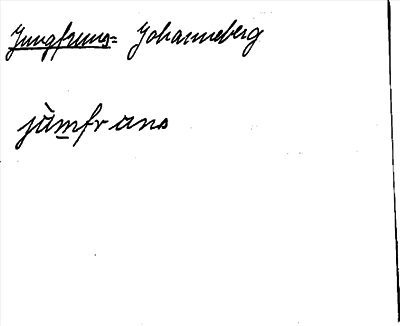 Jungfruns= Johanneberg
jùmfr ans